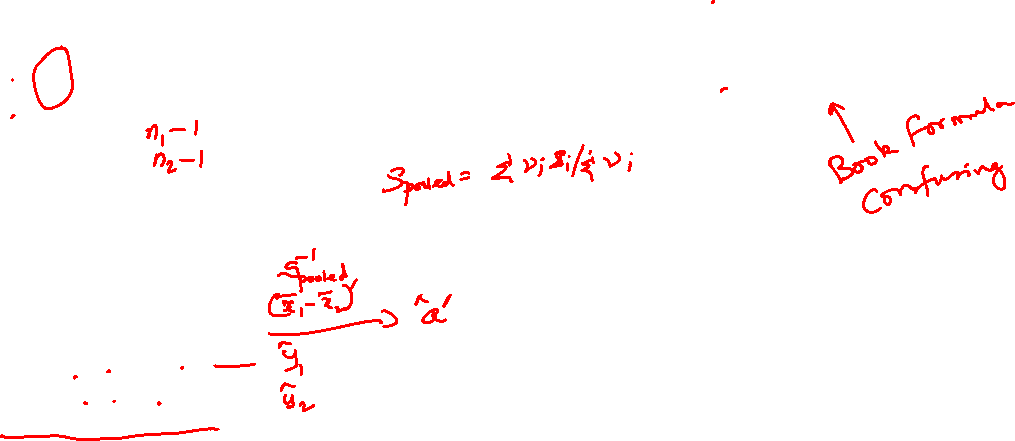 n₁-1
n₂-1
S pooled = Σ νᵢ Sᵢ / Σ νᵢ
Book Formula
Confusing
S⁻¹ pooled
(x̄₁-x̄₂)'
â'
ȳ₁
ȳ₂